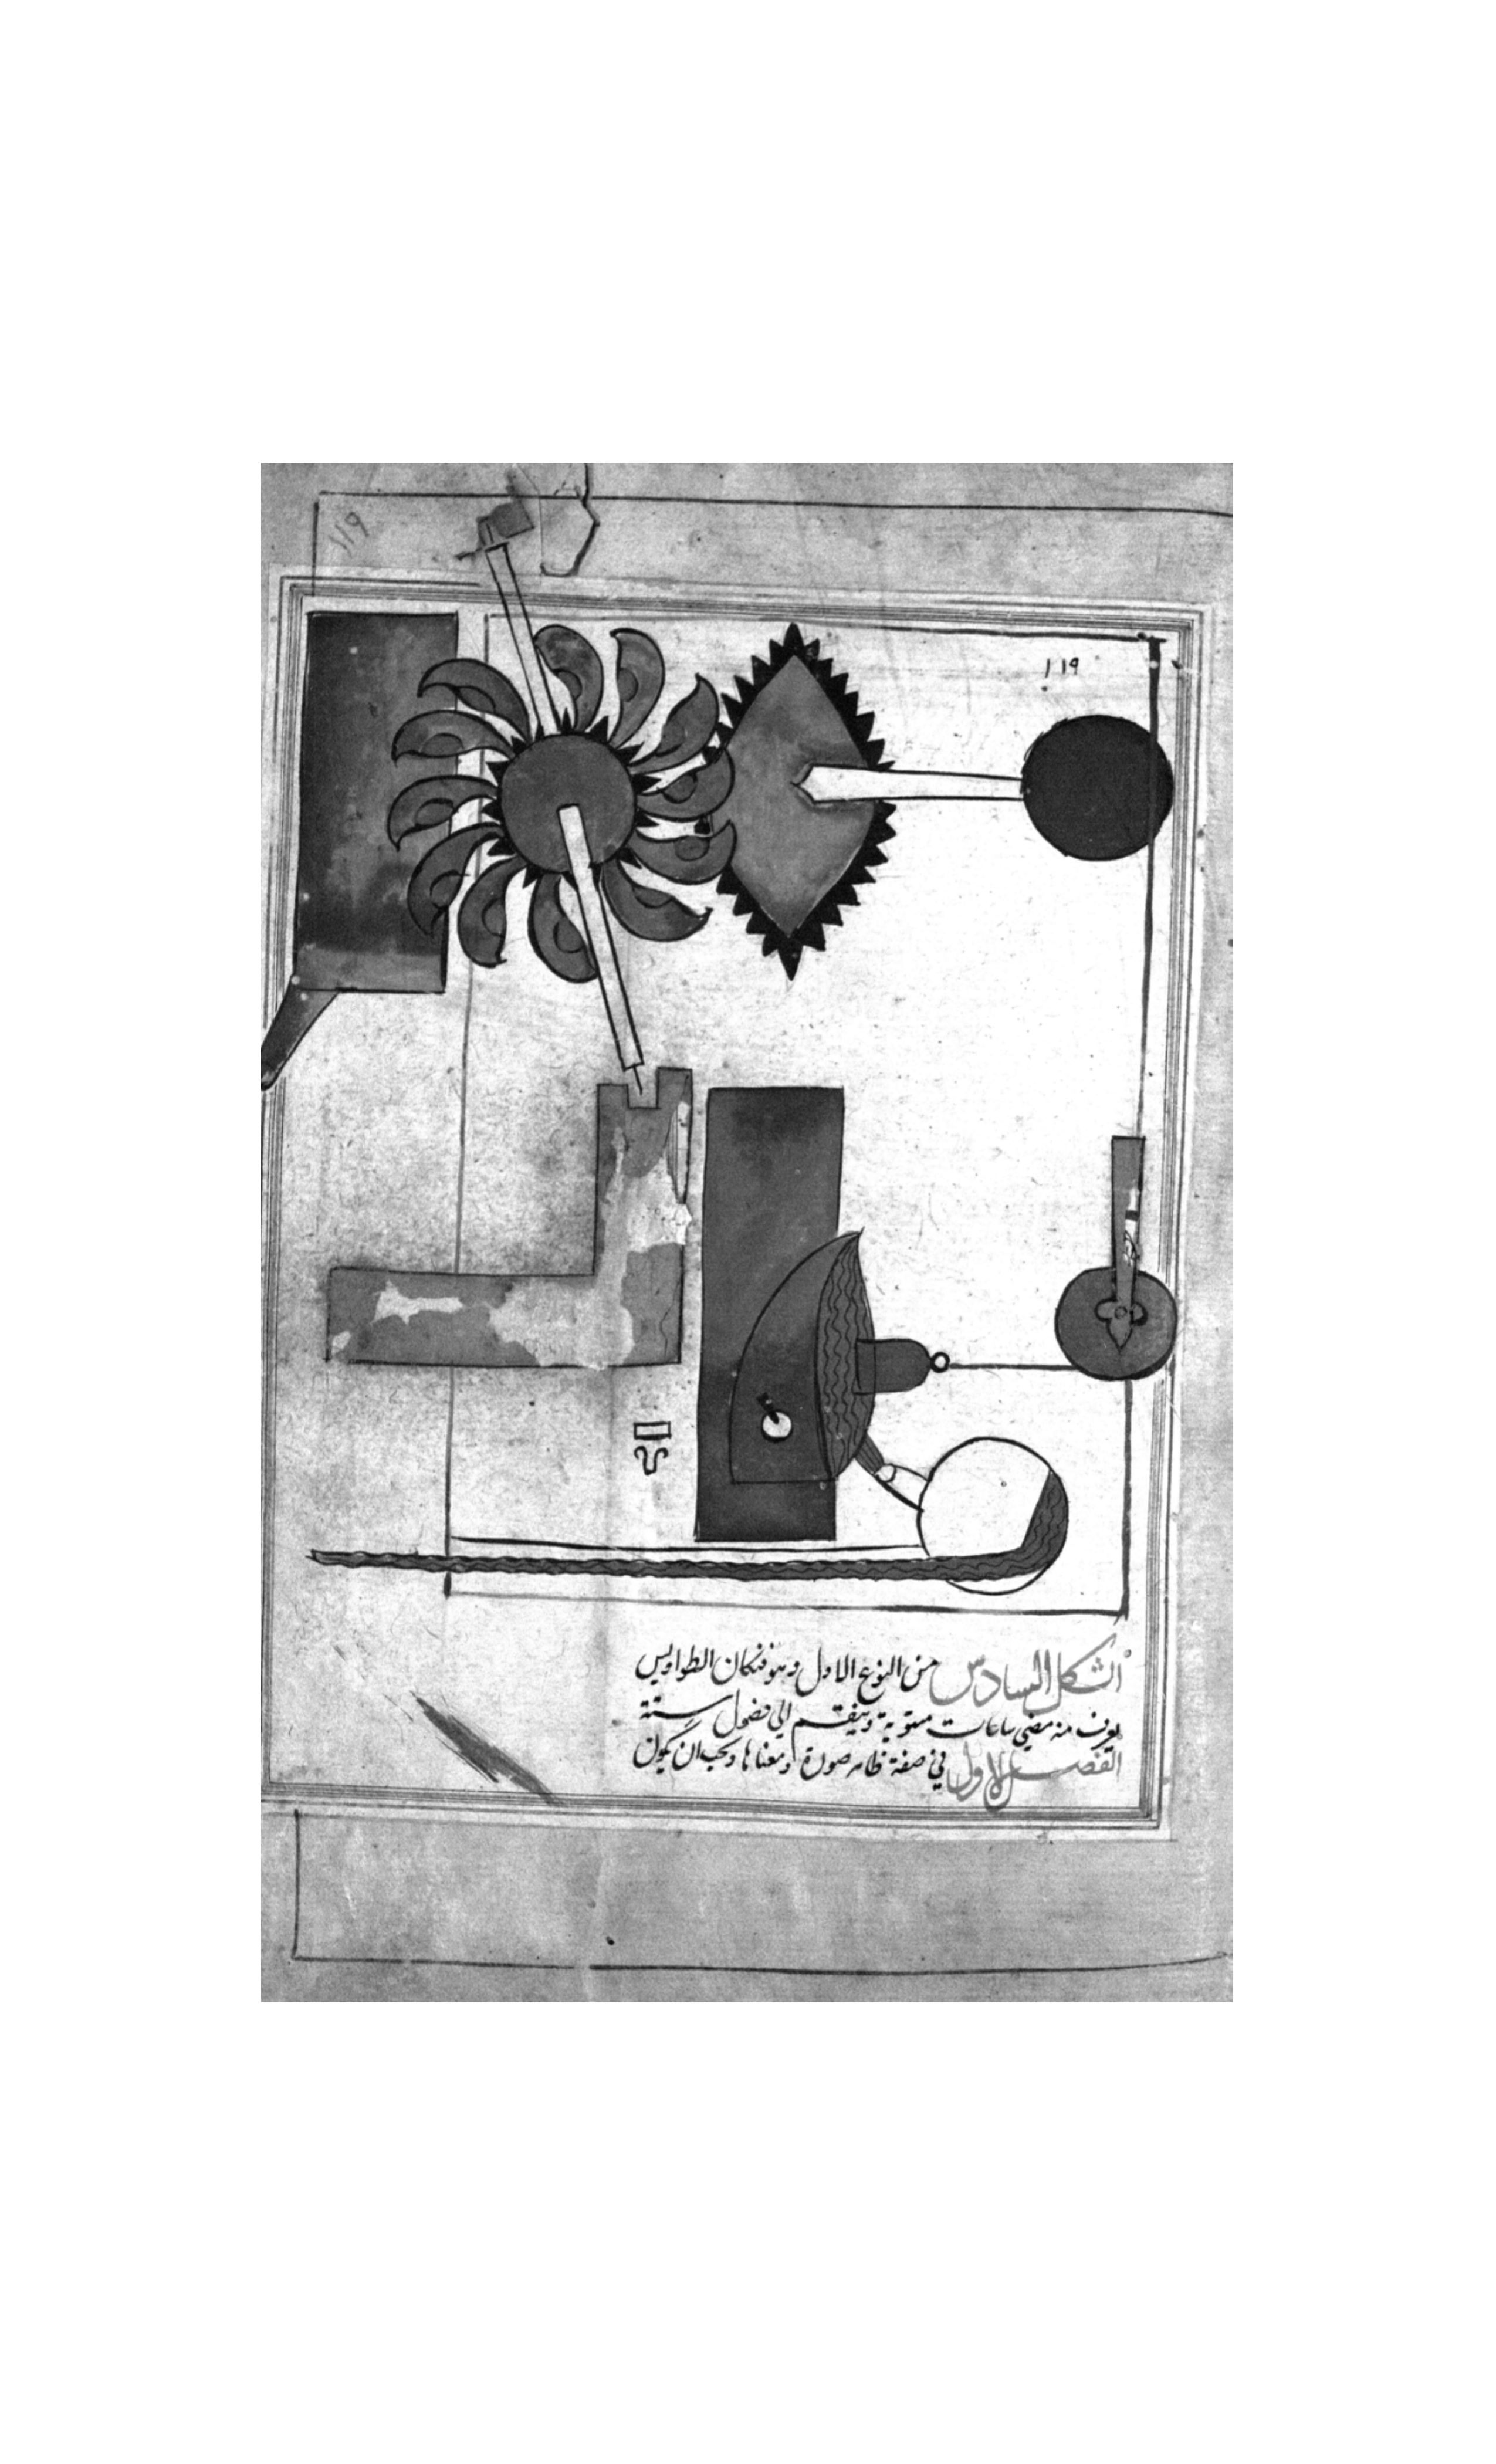 ١١٩
١١٩
الشكل السادس من النوع الاول وهو فنكان الطواويس
يعرف منه مضي ساعات مستوية وينقسم الي فصول ستة
الفصل الاول في صفة ظاهر صورة ومعناها ويجب ان يكون